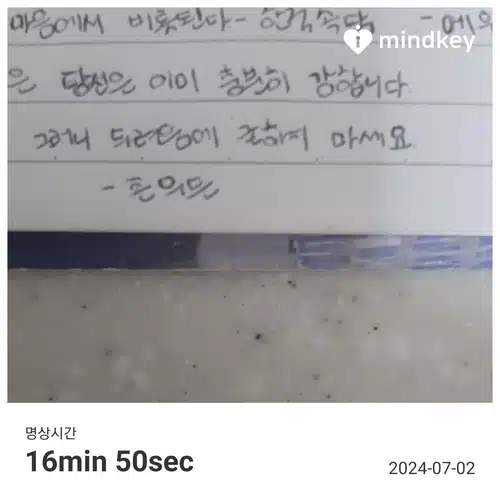 마음에서 비롯된다- 한국속담 - 에
mindkey
은 당신은 이미 충분히 강합니다.
그러니 두려움에 굴하지 마세요.
- 존 우든
명상시간
16min 50sec
2024-07-02